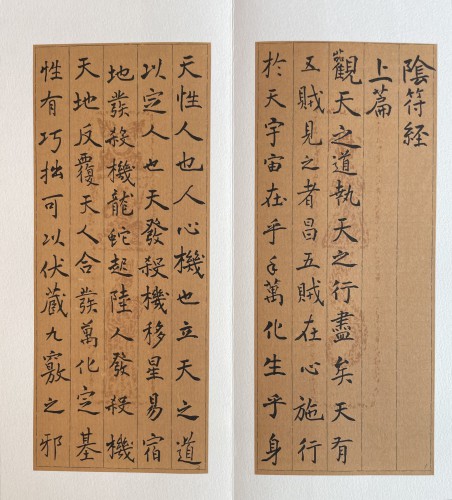 陰符經
上篇
觀天之道執天之行盡矣天有
五賊見之者昌五賊在心施行
於天宇宙在乎手萬化生乎身
天性人也人心機也立天之道
以定人也天發殺機移星易宿
地發殺機龍蛇起陸人發殺機
天地反覆天人合發萬化定基
性有巧拙可以伏藏九竅之邪